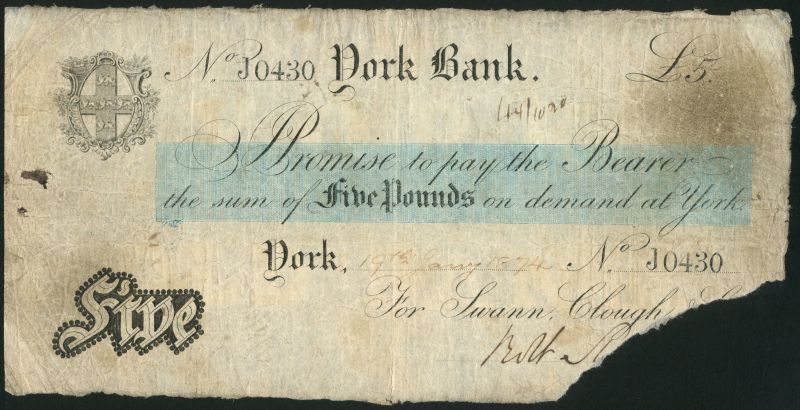 No J0430 York Bank. £5.
44/1020
I Promise to pay the Bearer
the sum of Five Pounds on demand at York.
York, 19th Jany 1874 No J0430
Five
For Swann, Clough &